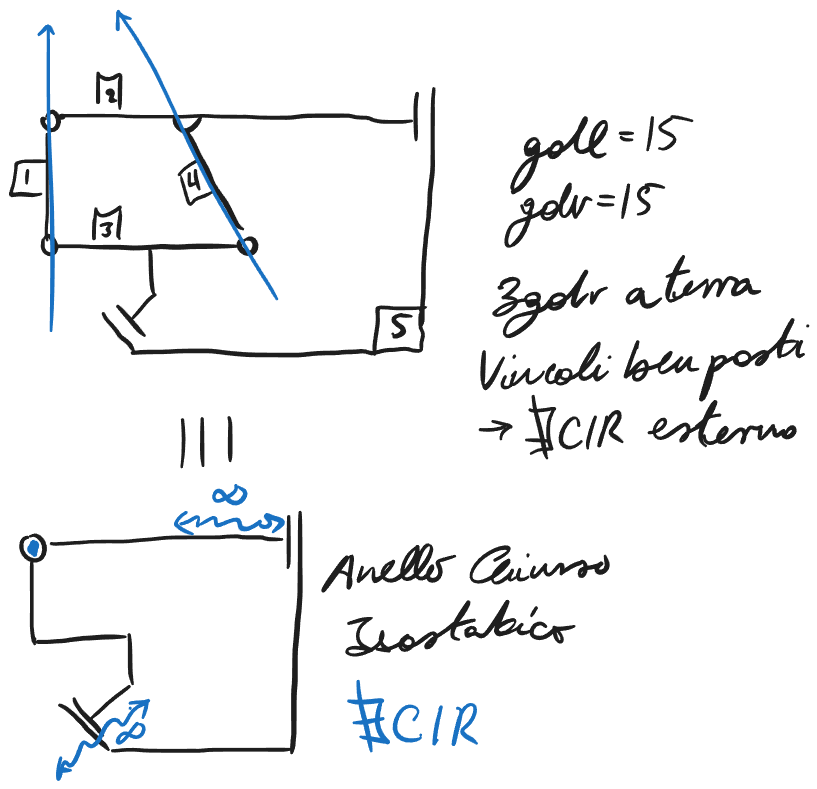 2
1
4
3
5
gdl = 15
gdv = 15
3 gdv a terra
Vincoli ben posti
→ ∄ CIR esterno
|||
∞
Anello Chiuso
Isostatico
∞
∄ CIR